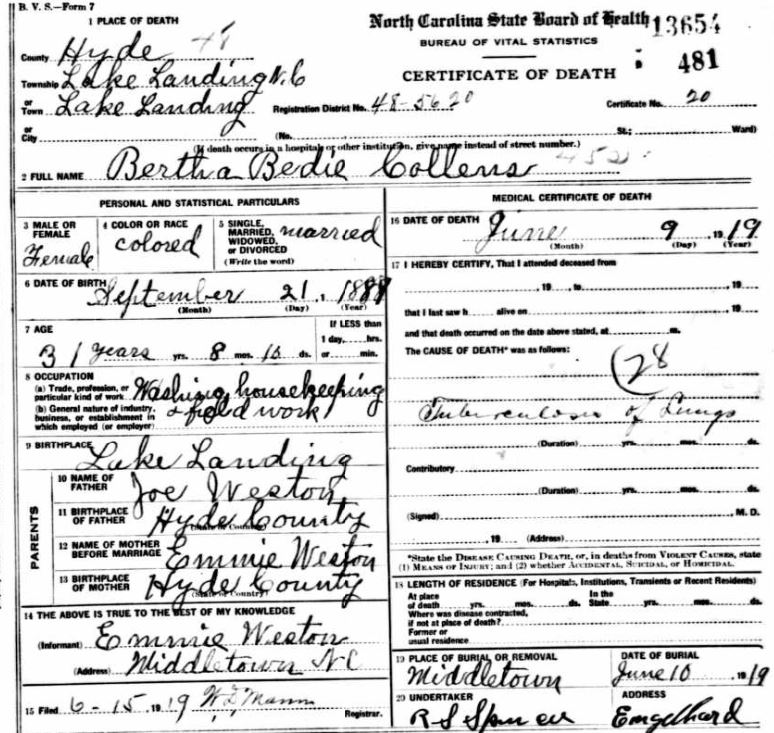 B. V. S.—Form 7
1 PLACE OF DEATH
North Carolina State Board of Health 13654
BUREAU OF VITAL STATISTICS
CERTIFICATE OF DEATH 481
County Hyde 48
Township Lake Landing N.C
or Town Lake Landing Registration District No. 48-5620 Certificate No. 20
or City (No. St.; Ward)
(If death occurs in a hospital or other institution, give name instead of street number.)
2 FULL NAME Bertha Bedie Collens
PERSONAL AND STATISTICAL PARTICULARS
3 MALE OR FEMALE Female
4 COLOR OR RACE colored
5 SINGLE, MARRIED, WIDOWED, OR DIVORCED (Write the word) married
6 DATE OF BIRTH September 21, 1888
(Month) (Day) (Year)
7 AGE
31 years yrs. 8 mos. ds.
If LESS than 1 day, hrs. or min.
8 OCCUPATION
(a) Trade, profession, or particular kind of work Washing, housekeeping
(b) General nature of industry, business, or establishment in which employed (or employer) & field work
9 BIRTHPLACE Lake Landing
PARENTS
10 NAME OF FATHER Joe Weston
11 BIRTHPLACE OF FATHER Hyde County
(State or Country)
12 NAME OF MOTHER BEFORE MARRIAGE Emmie Weston
13 BIRTHPLACE OF MOTHER Hyde County
(State or Country)
14 THE ABOVE IS TRUE TO THE BEST OF MY KNOWLEDGE
(Informant) Emmie Weston
(Address) Middletown NC
15 Filed 6-15, 1919 W D Mann Registrar.
MEDICAL CERTIFICATE OF DEATH
16 DATE OF DEATH June 9 1919
(Month) (Day) (Year)
17 I HEREBY CERTIFY, That I attended deceased from
, 19 , to , 19
that I last saw h alive on , 19
and that death occurred on the date above stated, at m.
The CAUSE OF DEATH* was as follows:
28
Tuberculosis of Lungs
(Duration) yrs. mos. ds.
Contributory
(Duration) yrs. mos. ds.
(Signed) M. D.
, 19 (Address)
*State the DISEASE CAUSING DEATH, or, in deaths from VIOLENT CAUSES, state
(1) MEANS OF INJURY; and (2) whether ACCIDENTAL, SUICIDAL, OR HOMICIDAL.
18 LENGTH OF RESIDENCE (For Hospitals, Institutions, Transients or Recent Residents)
At place of death yrs. mos. ds. In the State yrs. mos. ds.
Where was disease contracted, if not at place of death?
Former or usual residence
19 PLACE OF BURIAL OR REMOVAL Middletown
DATE OF BURIAL June 10, 1919
20 UNDERTAKER R S Spencer
ADDRESS Engelhard